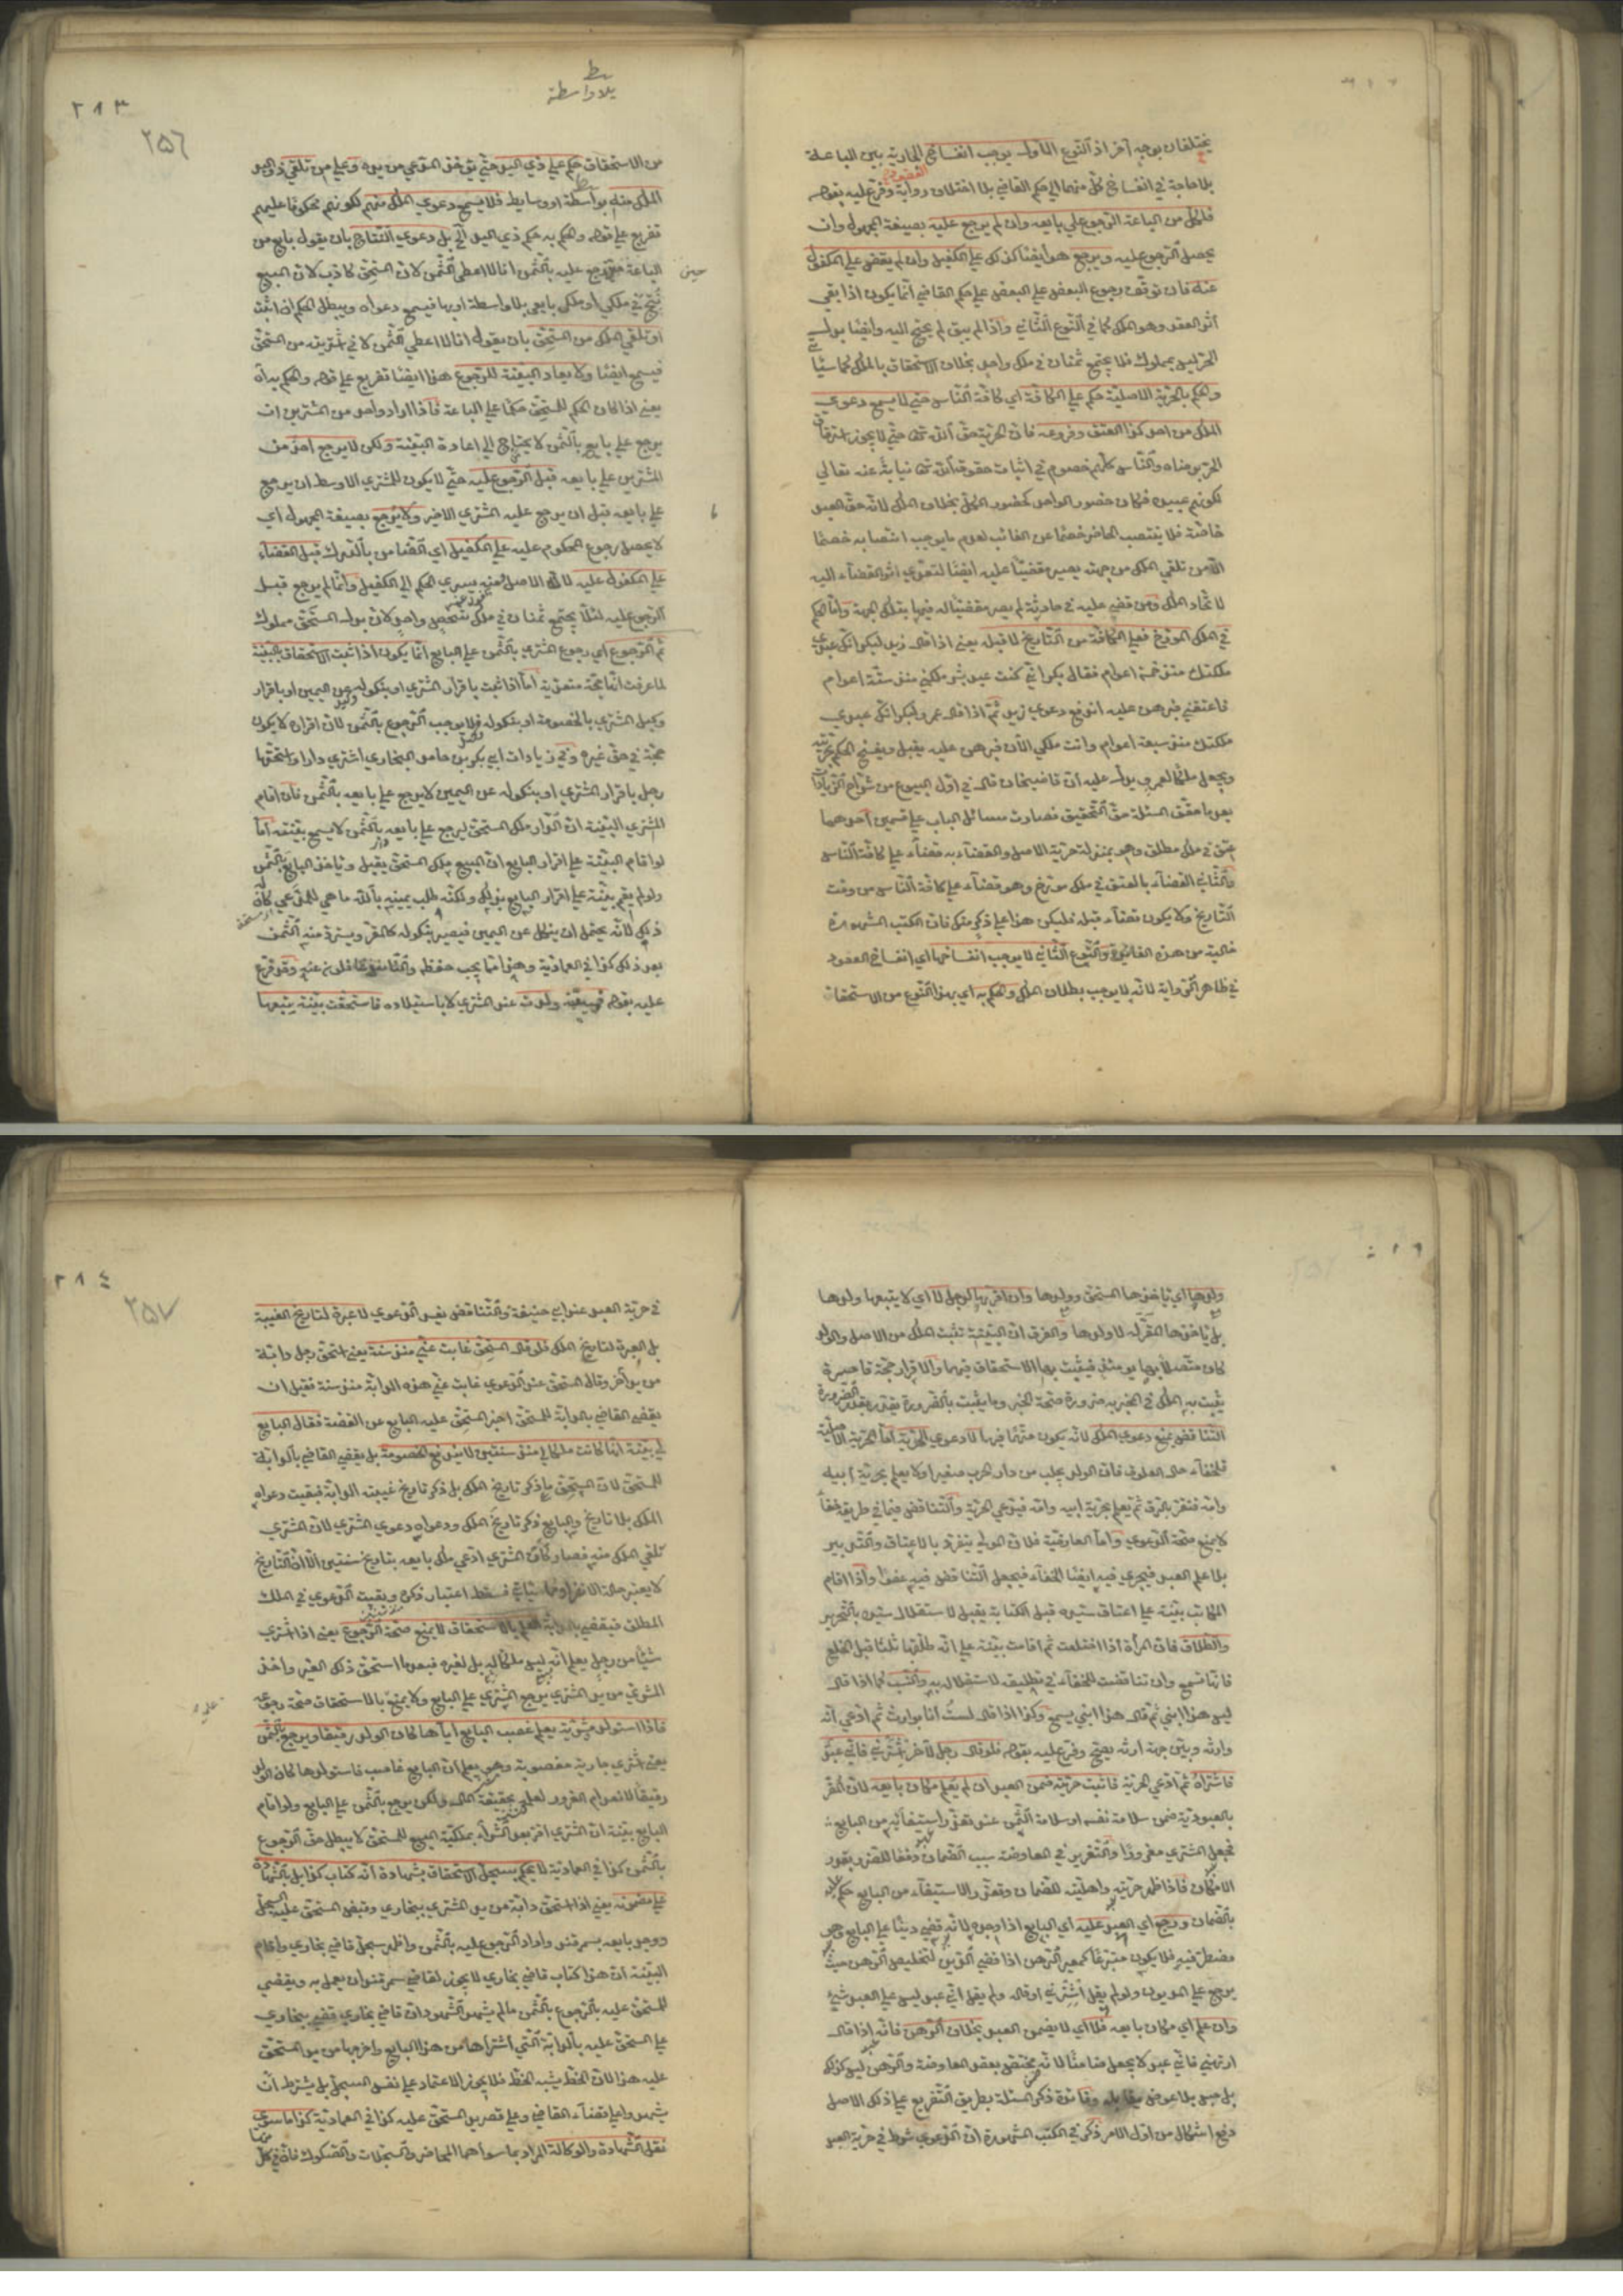 يختلفان بوجه آخر اذ النوع الاول يوجب انفساخ الجارية بين الباعة
بلا حاجة في انفساخ كل منهما الي حكم القاضي بلا اختلاف رواية وفرع عليه بقوله
فلكل من الباعة الرجوع علي بايعه وان لم يرجع عليه بصيغة المجهول وان
يحصل الرجوع عليه ويرجع هو ايضا كذلك علي الكفيل وان لم يقض علي المكفول
عنه فان توقف رجوع البعض علي البعض علي حكم القاضي انما يكون اذا بقي
اثر العقد وهو الملك كما في النوع الثاني واذا لم يبق لم يحتج اليه وايضا بدل
الحر ليس بمملوك فلا يجتمع ثمنان في ملك واحد بخلاف الاستحقاق بالملك كما سيأتي
والحكم بالحرية الاصلية حكم علي الكافة اي كافة الناس حتي لا يسمع دعوي
الملك من احد كذا العتق وفروعه فان الحرية حق الله تعالى حتي لا يجوز استرقاق
الحر برضاه والناس كلهم خصوم في اثبات حقوق الله تعالى نيابة عنه تعالي
لكونهم عبيده فكان حضور الواحد كحضور الكل بخلاف الملك لانه حق العبد
خاصة فلا ينتصب الحاضر خصما عن الغائب لعدم ما يوجب انتصابه خصما
الا من تلقي الملك من جهته يصير مقضيا عليه ايضا لتعدي اثر القضاء اليه
لاتحاد الملك ومن قضي عليه في حادثة لم يصر مقضيا له فيها بتلك الجهة واما الحكم
في الملك المورخ فعلي الكافة من التاريخ لا قبله يعني اذا قال زيد لبكر انك عبدي
ملكتك منذ خمسة اعوام فقال بكر اني كنت عبد بشر ملكني منذ ستة اعوام
فاعتقني فبرهن عليه اندفع دعوي زيد ثم اذا قال عمرو لبكر انك عبدي
ملكتك منذ سبعة اعوام وانت ملكي الان فبرهن عليه يقبل ويفسخ الحكم بحريته
ويجعل ملكا لعمرو يدل عليه ان قاضيخان قال في اول البيوع من شرح الزيادات
بعد ما حقق المسئلة حق التحقيق فصارت مسائل الباب علي قسمين احدهما
عتق في ملك مطلق وهو بمنزلة حرية الاصل والقضاء به قضاء علي كافة الناس
والثاني القضاء بالعتق في ملك مورخ وهو قضاء علي كافة الناس من وقت
التاريخ ولا يكون قضاء قبله فليكن هذا علي ذكر منك فان الكتب المشهورة
خالية من هذه الفائدة والنوع الثاني لا يوجب انفساخها اي انفساخ العقود
في ظاهر الرواية لانه لا يوجب بطلان الملك والحكم به اي بهذا النوع من الاستحقاق
بلا واسطة
٢٨٣
٢٥٦
من الاستحقاق حكم علي ذي اليد حتي يؤخذ المدعي من يده وعلي من تلقي ذو اليد
الملك منه بواسطة او وسايط فلا يسمع دعوي الملك منهم لكونهم محكوما عليهم
تفريع علي قوله والحكم به حكم ذي اليد الخ بل دعوي النتاج بان يقول بايع من
الباعة حين رجع عليه بالثمن انا لا اعطي الثمن لان المستحق كاذب لان المبيع
نتج في ملكي او ملك بايعي بلا واسطة او بها فيسمع دعواه ويبطل الحكم ان اثبت
او تلقي الملك من المستحق بان يقول انا لا اعطي الثمن لاني شريته من المستحق
فيسمع ايضا ولا يعاد البينة للرجوع هذا ايضا تفريع علي قوله والحكم به الخ
يعني اذا كان الحكم للمستحق حكما علي الباعة فاذا اراد واحد من المشترين ان
يرجع علي بايعه بالثمن لا يحتاج الي اعادة البينة ولكن لا يرجع احد من
المشترين علي بايعه قبل الرجوع عليه حتي لا يكون للمشتري الاوسط ان يرجع
علي بايعه قبل ان يرجع عليه المشتري الاخير ولا يرجع بصيغة المجهول اي
لا يحصل رجوع المحكوم عليه علي الكفيل اي الضامن بالدرك قبل القضاء
علي المكفول عليه لانه الاصل فمنه يسري الحكم الي الكفيل وانما لم يرجع قبل
الرجوع عليه لئلا يجتمع ثمنان في ملك شخص واحد لان بدل المستحق مملوك
ثم الرجوع اي رجوع المشتري بالثمن علي البايع انما يكون اذا ثبت الاستحقاق بالبينة
لما عرفت انها حجة متعدية اما اذا ثبت باقرار المشتري او بنكوله عن اليمين او باقرار
وكيل المشتري بالخصومة او بنكوله فلا يوجب الرجوع بالثمن لان اقراره لا يكون
حجة في حق غيره وفي زيادات ابي بكر بن حامد البخاري اشتري دارا واستحقها
رجل باقرار المشتري او بنكوله عن اليمين لا يرجع علي بايعه بالثمن فان اقام
المشتري البينة ان الدار ملك المستحق ليرجع علي بايعه بالثمن لا يسمع بينته اما
لو اقام البينة علي اقرار البايع ان المبيع ملك المستحق يقبل وياخذ البايع بالثمن
ولو لم يقم بينة علي اقرار البايع بذلك ولكنه طلب يمينه بالله ما هي للمدعي كان له
ذلك لانه يحتمل ان ينكل عن اليمين فيصير بنكوله كالمقر ويسترد منه الثمن
بعد ذلك كذا في العمادية وهذا مما يجب حفظه والناس عنه غافلون وقد فرع
عليه بقوله فمبيعة ولدت عند المشتري لا باستيلاده فاستحقت ببينة يتبعها
ولدها اي ياخذها المستحق وولدها وان اقر بها لرجل لا اي لا يتبعها ولدها
بل ياخذها المقر له لا ولدها والفرق ان البينة تثبت الملك من الاصل والولد
كان متصلا بها يومئذ فيثبت بها الاستحقاق فيهما والاقرار حجة قاصرة
يثبت به الملك في المخبر به ضرورة صحة الخبر وما يثبت بالضرورة يتقدر بقدر الضرورة
التناقض يمنع دعوي الملك لانه يكون متهما فيها لا دعوي الحرية اما الحرية الاصلية
فلخفاء حال العلوق فان الولد يجلب من دار الحرب صغيرا ولا يعلم بحرية ابيه
وامه فتقر بالرق ثم يعلم بحرية ابيه وامه فيدعي الحرية والتناقض فيما في طريقه خفاء
لا يمنع صحة الدعوي واما العارضية فلان المولي يتفرد بالاعتاق والتدبير
بلا علم العبد فيجري فيه ايضا الخفاء فيجعل التناقض فيه عفوا واذا اقام
المكاتب بينة علي اعتاق سيده قبل الكتابة يقبل لاستقلال سيده بالتحرير
والطلاق فان المرأة اذا اختلعت ثم اقامت بينة علي انه طلقها ثلثا قبل الخلع
فانها تسمع وان تناقضت للخفاء في تطليقه لاستقلاله به والنسب كما اذا قال
ليس هذا ابني ثم قال هذا ابني يسمع وكذا اذا قال لست انا بوارث ثم ادعي انه
وارثه وبين جهة ارثه يصح وفرع عليه بقوله فلو قال رجل لآخر اشترني فاني عبد
فاشتراه ثم ادعي الحرية فاثبت حريته ضمن العبد ان لم يعلم مكان بايعه لان المقر
بالعبودية ضمن سلامة نفسه او سلامة الثمن عند تعذر استيفائه من البايع
فجعل المشتري مغرورا والتغرير في المعاوضة سبب الضمان دفعا للضرر بقدر
الامكان فاذا ظهر حريته واهليته للضمان وتعذر الاستيفاء من البايع حكم عليه
بالضمان ورجع اي العبد عليه اي البايع اذا وجده لانه قضي دينا علي البايع وهو
مضطر فيه فلا يكون متبرعا كمعير الرهن اذا قضي الدين لتخليص الرهن حيث
يرجع علي المديون ولو لم يقل اشترني او قال ولم يقل اني عبد ليس علي العبد شئ
وان علم اي مكان بايعه فلا اي لا يضمن العبد بخلاف الرهن فانه اذا قال
ارتهني فاني عبد لا يجعل ضامنا لانه مختص بعقد المعاوضة والرهن ليس كذلك
بل حبس بلا عوض يقابله وفائدة ذكر المسئلة بطريق التفريع علي ذلك الاصل
دفع اشكال من اول الامر ذكر في الكتب المشهورة ان الدعوي شرط في حرية العبد
٢٨٤
٢٥٧
في حرية العبد عند ابي حنيفة والتناقض يفسد الدعوي لا عبرة لتاريخ الغيبة
بل العبرة لتاريخ الملك فلو قال المستحق غابت عني منذ سنة يعني استحق رجل دابة
من يد آخر وقال المستحق عند الدعوي غابت عني هذه الدابة منذ سنة فقبل ان
يقضي القاضي بالدابة للمستحق اخبر المستحق عليه البايع عن القضية فقال البايع
لي بينة انها كانت ملكا لي منذ سنتين لا يندفع الخصومة بل يقضي القاضي بالدابة
للمستحق لان المستحق ما ذكر تاريخ الملك بل ذكر تاريخ غيبته الدابة فبقيت دعواه
الملك بلا تاريخ والبايع ذكر تاريخ الملك ودعواه دعوي المشتري لان المشتري
تلقي الملك منه فصار كان المشتري ادعي ملك بايعه بتاريخ سنتين الا ان التاريخ
لا يعتبر حالة الانفراد كما سيأتي فسقط اعتبار ذكره وبقيت الدعوي في الملك
المطلق فيقضي بالدابة العلم بالاستحقاق لا يمنع صحة الرجوع يعني اذا اشتري
شيئا من رجل يعلم انه ليس ملكا له بل لغيره فبعد ما استحق ذلك الغير واخذ
المشري من يد المشتري يرجع المشتري علي البايع ولا يمنع بالاستحقاق صحة رجوعه
فاذا استولد مشرية يعلم غصب البايع اياها كان الولد رقيقا ويرجع بالثمن
يعني اشتري جارية مغصوبة وهو يعلم ان البايع غاصب فاستولدها كان الولد
رقيقا لانعدام الغرور لعلمه بحقيقة الحال ولكن يرجع بالثمن علي البايع ولو اقام
البايع بينة ان المشتري اقر بعد الشراء بملكية المبيع للمستحق لا يبطل حق الرجوع
بالثمن كذا في العمادية لا يحكم بسجل الاستحقاق بشهادة انه كتاب كذا بل بالشهادة
علي مضمونه يعني اذا استحق دابة من يد المشتري ببخاري وقبض المستحق عليه السجل
ووجد بايعه بسمرقند واراد الرجوع عليه بالثمن واظهر سجل قاضي بخاري واقام
البينة ان هذا كتاب قاضي بخاري لا يجوز لقاضي سمرقند ان يعمل به ويقضي
للمستحق عليه بالرجوع بالثمن ما لم يشهد الشهود ان قاضي بخاري قضي ببخاري
علي المستحق عليه بالدابة التي اشتراها من هذا البايع واخرجها من يد المستحق
عليه هذا لان الخط يشبه الخط فلا يجوز الاعتماد علي نفس السجل بل يشترط ان
يشهدوا علي قضاء القاضي وعلي قصر يد المستحق عليه كذا في العمادية كذا ما سوي
نقل الشهادة والوكالة المراد بما سواهما المحاضر والسجلات والصكوك فان في كل منها